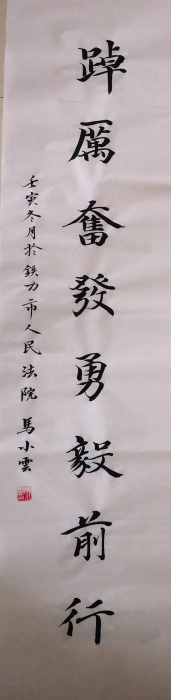 踔厲奮發勇毅前行
壬寅冬月於鉄力市人民法院 馬小雲